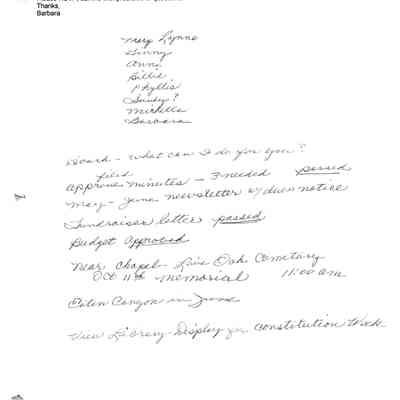 Thanks,
Barbara
Mary Lynne
Ginny
Ann
Billie
Phyllis
Sandy?
Michelle
Barbara
Board - What can I do for you?
filed
approve minutes - 3 needed passed
May - June newsletter w/ dues notice
Fundraiser letter passed
Budget Approved
Near Chapel - Live Oak Cemetary
Oct 11th memorial 11:00 am
Eaton Canyon in June
View Library - Display for Constitution Week